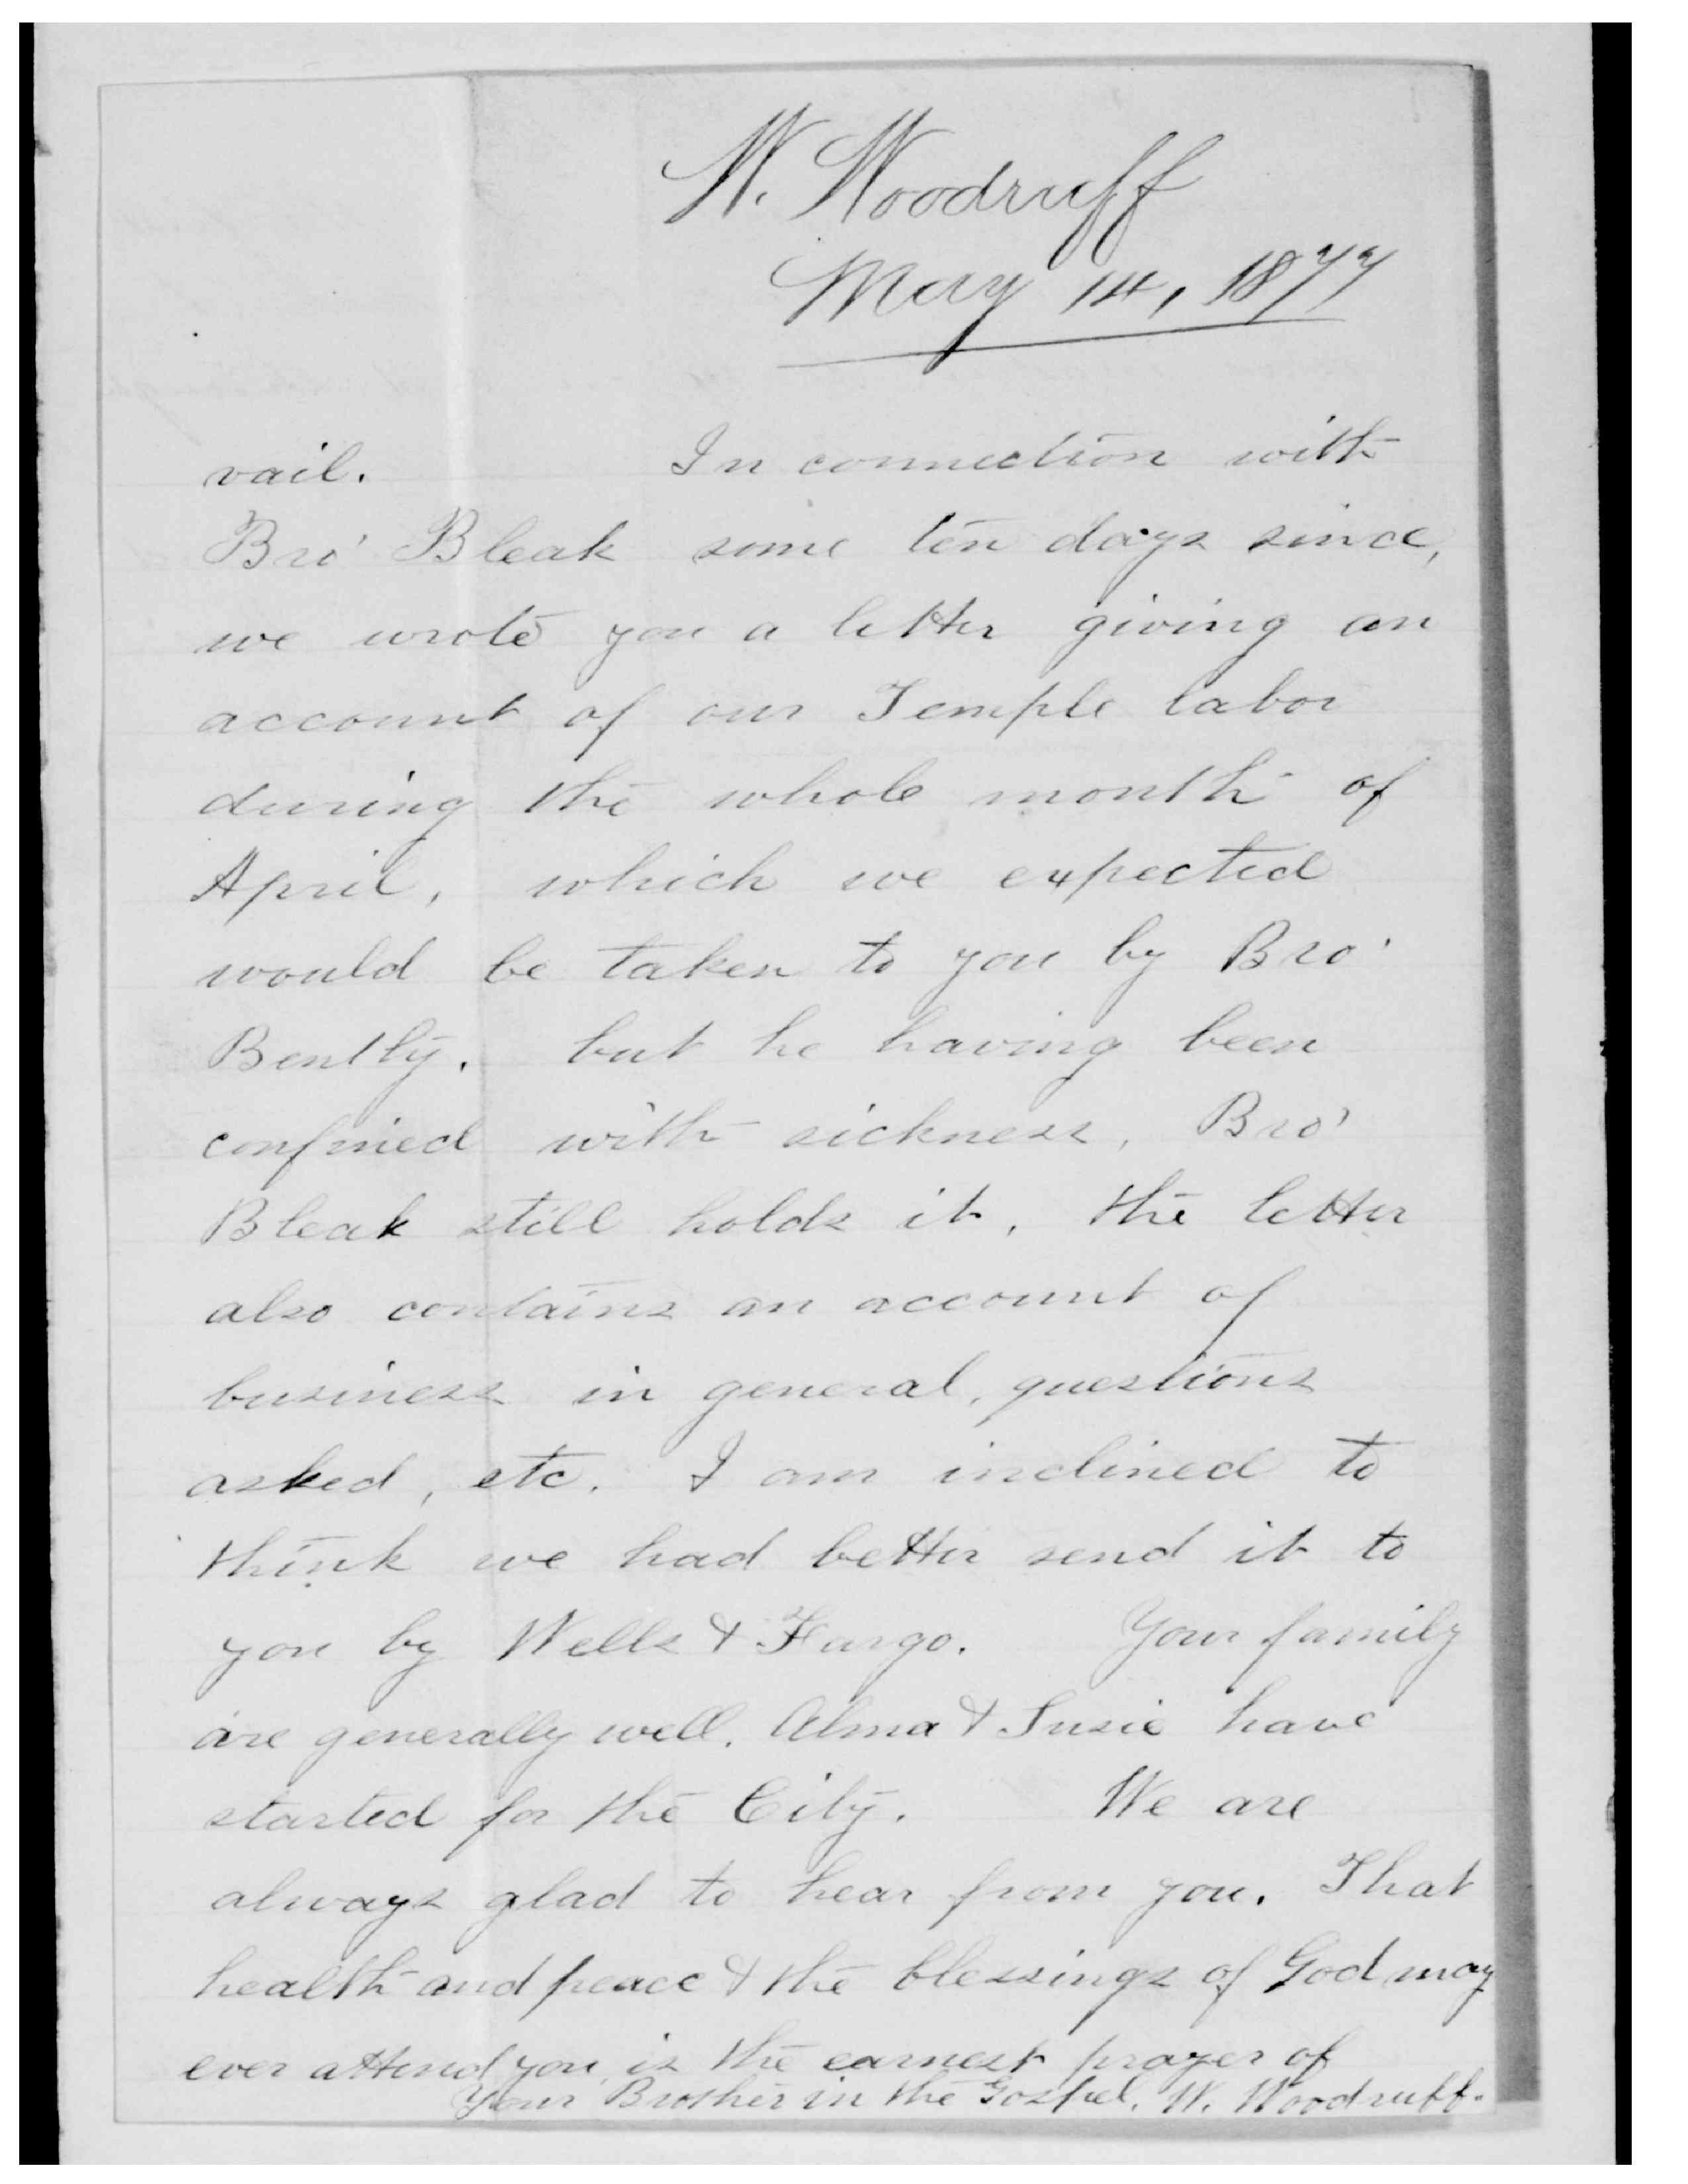 W. Woodruff
May 14, 1877
vail. In connection with
Bro' Bleak some ten days since,
we wrote you a letter giving an
account of our Temple labor
during the whole month of
April, which we expected
would be taken to you by Bro'
Bently. but he having been
confined with sickness, Bro'
Bleak still holds it, the letter
also contains an account of
business in general, questions
asked, etc. I am inclined to
think we had better send it to
you by Wells & Fargo. Your family
are generally well. Alma & Susie have
started for the City. We are
always glad to hear from you. That
health and peace & the blessings of God may
ever attend you, is the earnest prayer of
Your Brother in the Gospel. W. Woodruff.